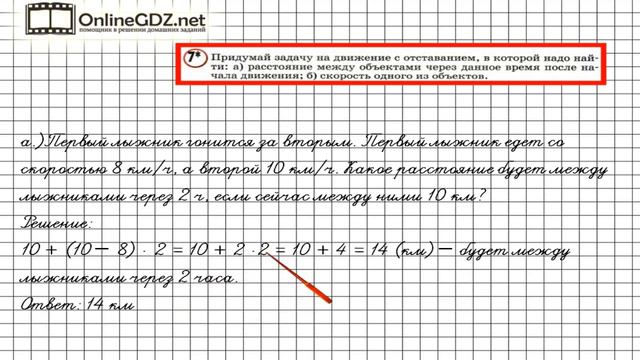 OnlineGDZ.net
помощник в решении домашних заданий
7* Придумай задачу на движение с отставанием, в которой надо най-
ти: а) расстояние между объектами через данное время после на-
чала движения; б) скорость одного из объектов.
а.) Первый лыжник гонится за вторым. Первый лыжник едет со
скоростью 8 км/ч, а второй 10 км/ч. Какое расстояние будет между
лыжниками через 2 ч, если сейчас между ними 10 км?
Решение:
10 + (10 − 8) · 2 = 10 + 2 · 2 = 10 + 4 = 14 (км) − будет между
лыжниками через 2 часа.
Ответ: 14 км